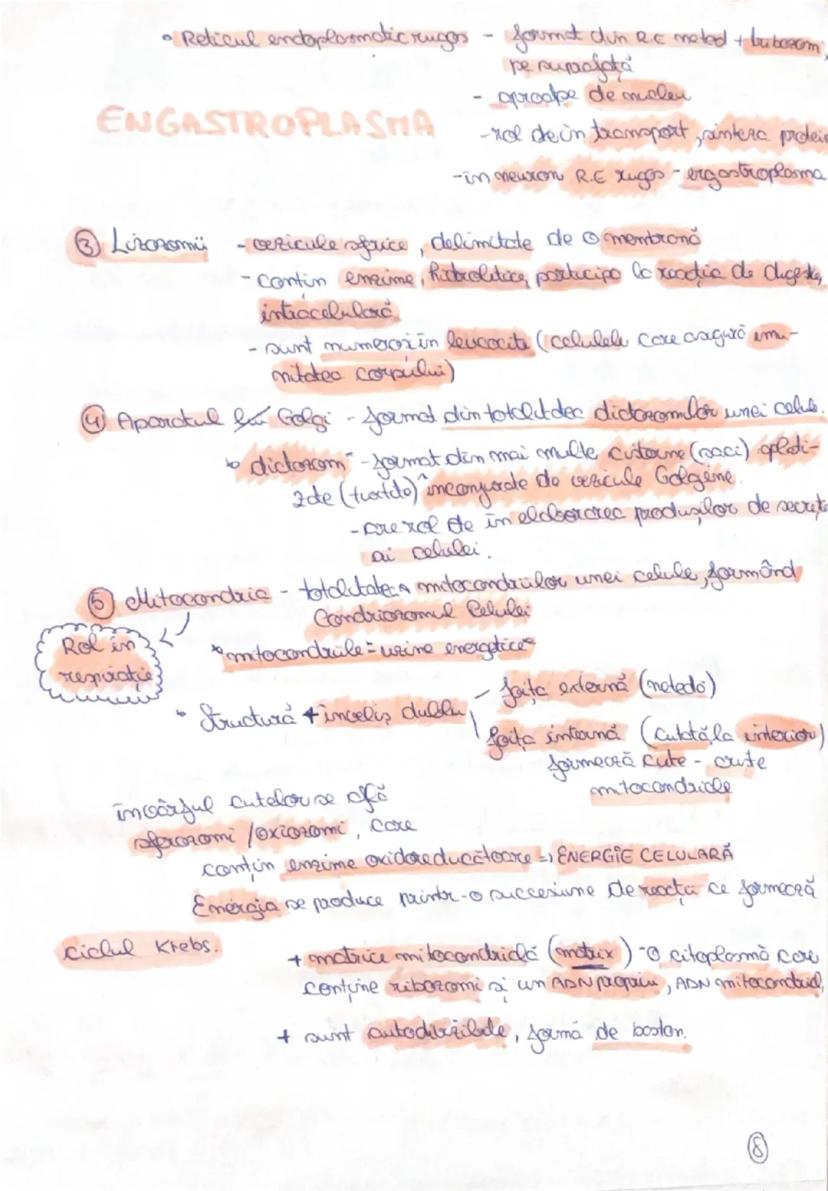 • Reticul endoplasmatic rugos - format din R.E neted + ribozomi,
pe suprafață
- aproape de nucleu
ENGASTROPLASMA
- rol de în transport, sinteza protei
- în neuron R.E rugos - ergastroplasma
③ Lizozomii - vezicule sferice, delimitate de o membrană
- conțin enzime, hidrolitice, participă la reacția de digesti,
intracelulară
- sunt numeroși în leucocite (celulele care asigură imu-
nitatea corpului)
④ Aparatul Golgi - format din totalitatea dictozomilor unei celule.
dictozom - format din mai multe cisterne (saci) aplati-
zate (turtite) înconjurate de vezicule Golgiene.
- are rol de în elaborarea produșilor de secreț
ai celulei.
⑤ Mitocondria - totalitatea mitocondriilor unei celule, formând
Condriozomul Celulei
Rol în
respirație
"mitocondriile = uzine energetice"
• Structură + înveliș dublu
foița externă (netedă)
foița internă (cutată la interior)
formează cute - criste
mitocondriale
în vârful cutelor se află
sferozomi / oxizomi, care
conțin enzime oxidoreducătoare => ENERGIE CELULARĂ
Energia se produce printr-o succesiune de reacții ce formează
ciclul Krebs.
+ matrice mitocondrială (matrix) - o citoplasmă care
conține ribozomi și un ADN propriu, ADN mitocondrial,
+ sunt autodivizibile, formă de baston.
⑧